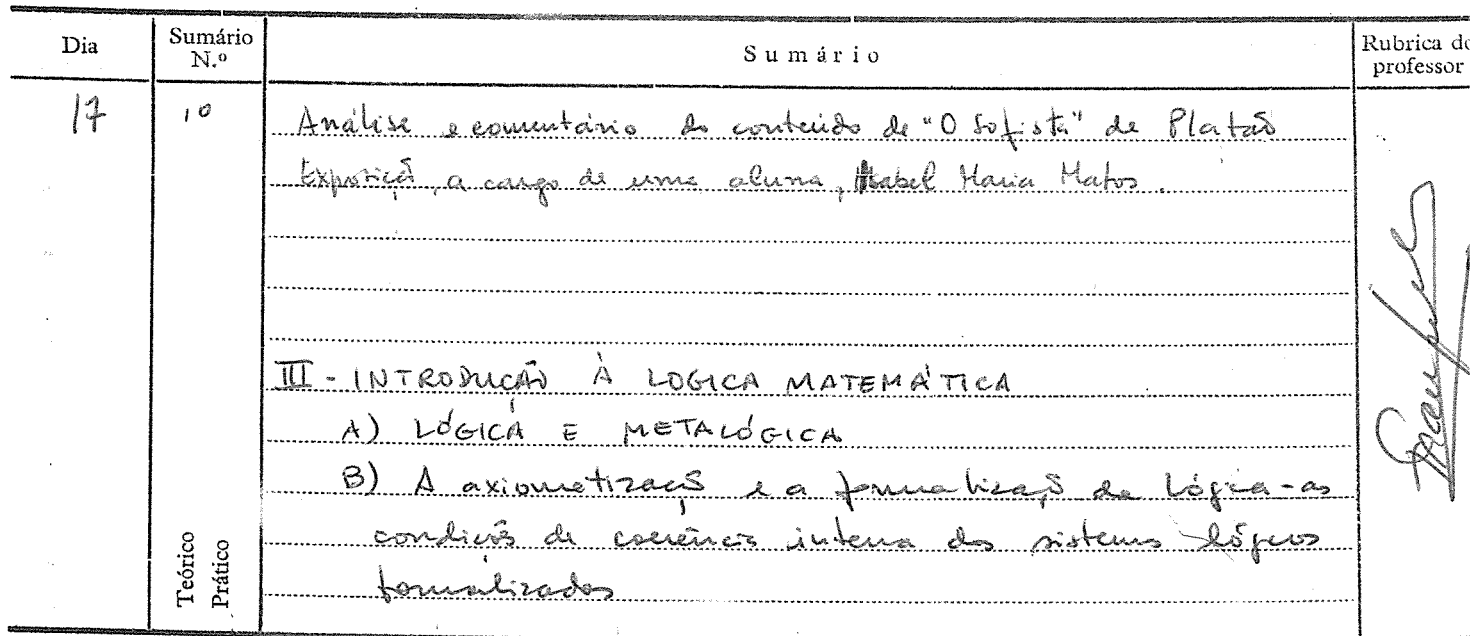 Dia Sumário N.º Sumário Rubrica do professor
17 1º Análise e comentário do conteúdo de "O Sofista" de Platão
Exposição, a cargo de uma aluna, Isabel Maria Matos.
III - INTRODUÇÃO À LOGICA MATEMÁTICA
A) LÓGICA E METALÓGICA
B) A axiometização e a formalização da Lógica - as
condições de coerência interna dos sistemas lógicos
formalizados
Teórico
Prático